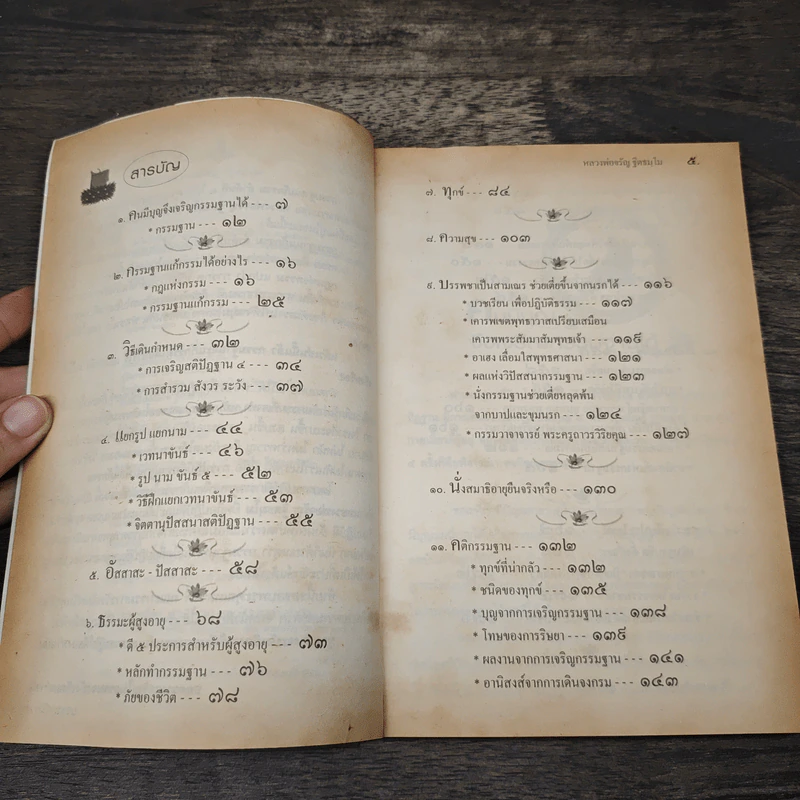 สารบัญ
๑. คนมีบุญจึงเจริญกรรมฐานได้ --- ๗
* กรรมฐาน --- ๑๒
๒. กรรมฐานแก้กรรมได้อย่างไร --- ๑๖
* กฎแห่งกรรม --- ๑๖
* กรรมฐานแก้กรรม --- ๒๕
๓. วิธีเดินกำหนด --- ๓๒
* การเจริญสติปัฏฐาน ๔ --- ๓๔
* การสำรวม สังวร ระวัง --- ๓๗
๔. แยกรูป แยกนาม --- ๔๔
* เวทนาขันธ์ --- ๔๖
* รูป นาม ขันธ์ ๕ --- ๕๒
* วิธีฝึกแยกเวทนาขันธ์ --- ๕๓
* จิตตานุปัสสนาสติปัฏฐาน --- ๕๕
๕. อัสสาสะ - ปัสสาสะ --- ๕๘
๖. ธรรมะผู้สูงอายุ --- ๖๘
* ดี ๕ ประการสำหรับผู้สูงอายุ --- ๗๓
* หลักทำกรรมฐาน --- ๗๖
* ภัยของชีวิต --- ๗๘
หลวงพ่อจรัญ ฐิตธมฺโม ๕.
๗. ทุกข์ --- ๘๔
๘. ความสุข --- ๑๐๓
๙. บรรพชาเป็นสามเณร ช่วยเตี่ยขึ้นจากนรกได้ --- ๑๑๖
* บวชเรียน เพื่อปฏิบัติธรรม --- ๑๑๗
* เคารพเขตพุทธาวาสเปรียบเสมือน
เคารพพระสัมมาสัมพุทธเจ้า --- ๑๑๙
* อาเฮง เลื่อมใสพุทธศาสนา --- ๑๒๑
* ผลแห่งวิปัสสนากรรมฐาน --- ๑๒๓
* นั่งกรรมฐานช่วยเตี่ยหลุดพ้น
จากบาปและขุมนรก --- ๑๒๔
* กรรมวาจาจารย์ พระครูถาวรวิริยคุณ --- ๑๒๗
๑๐. นั่งสมาธิอายุยืนจริงหรือ --- ๑๓๐
๑๑. คติกรรมฐาน --- ๑๓๒
* ทุกข์ที่น่ากลัว --- ๑๓๒
* ชนิดของทุกข์ --- ๑๓๕
* บุญจากการเจริญกรรมฐาน --- ๑๓๘
* โทษของการริษยา --- ๑๓๙
* ผลงานจากการเจริญกรรมฐาน --- ๑๔๑
* อานิสงส์จากการเดินจงกรม --- ๑๔๓